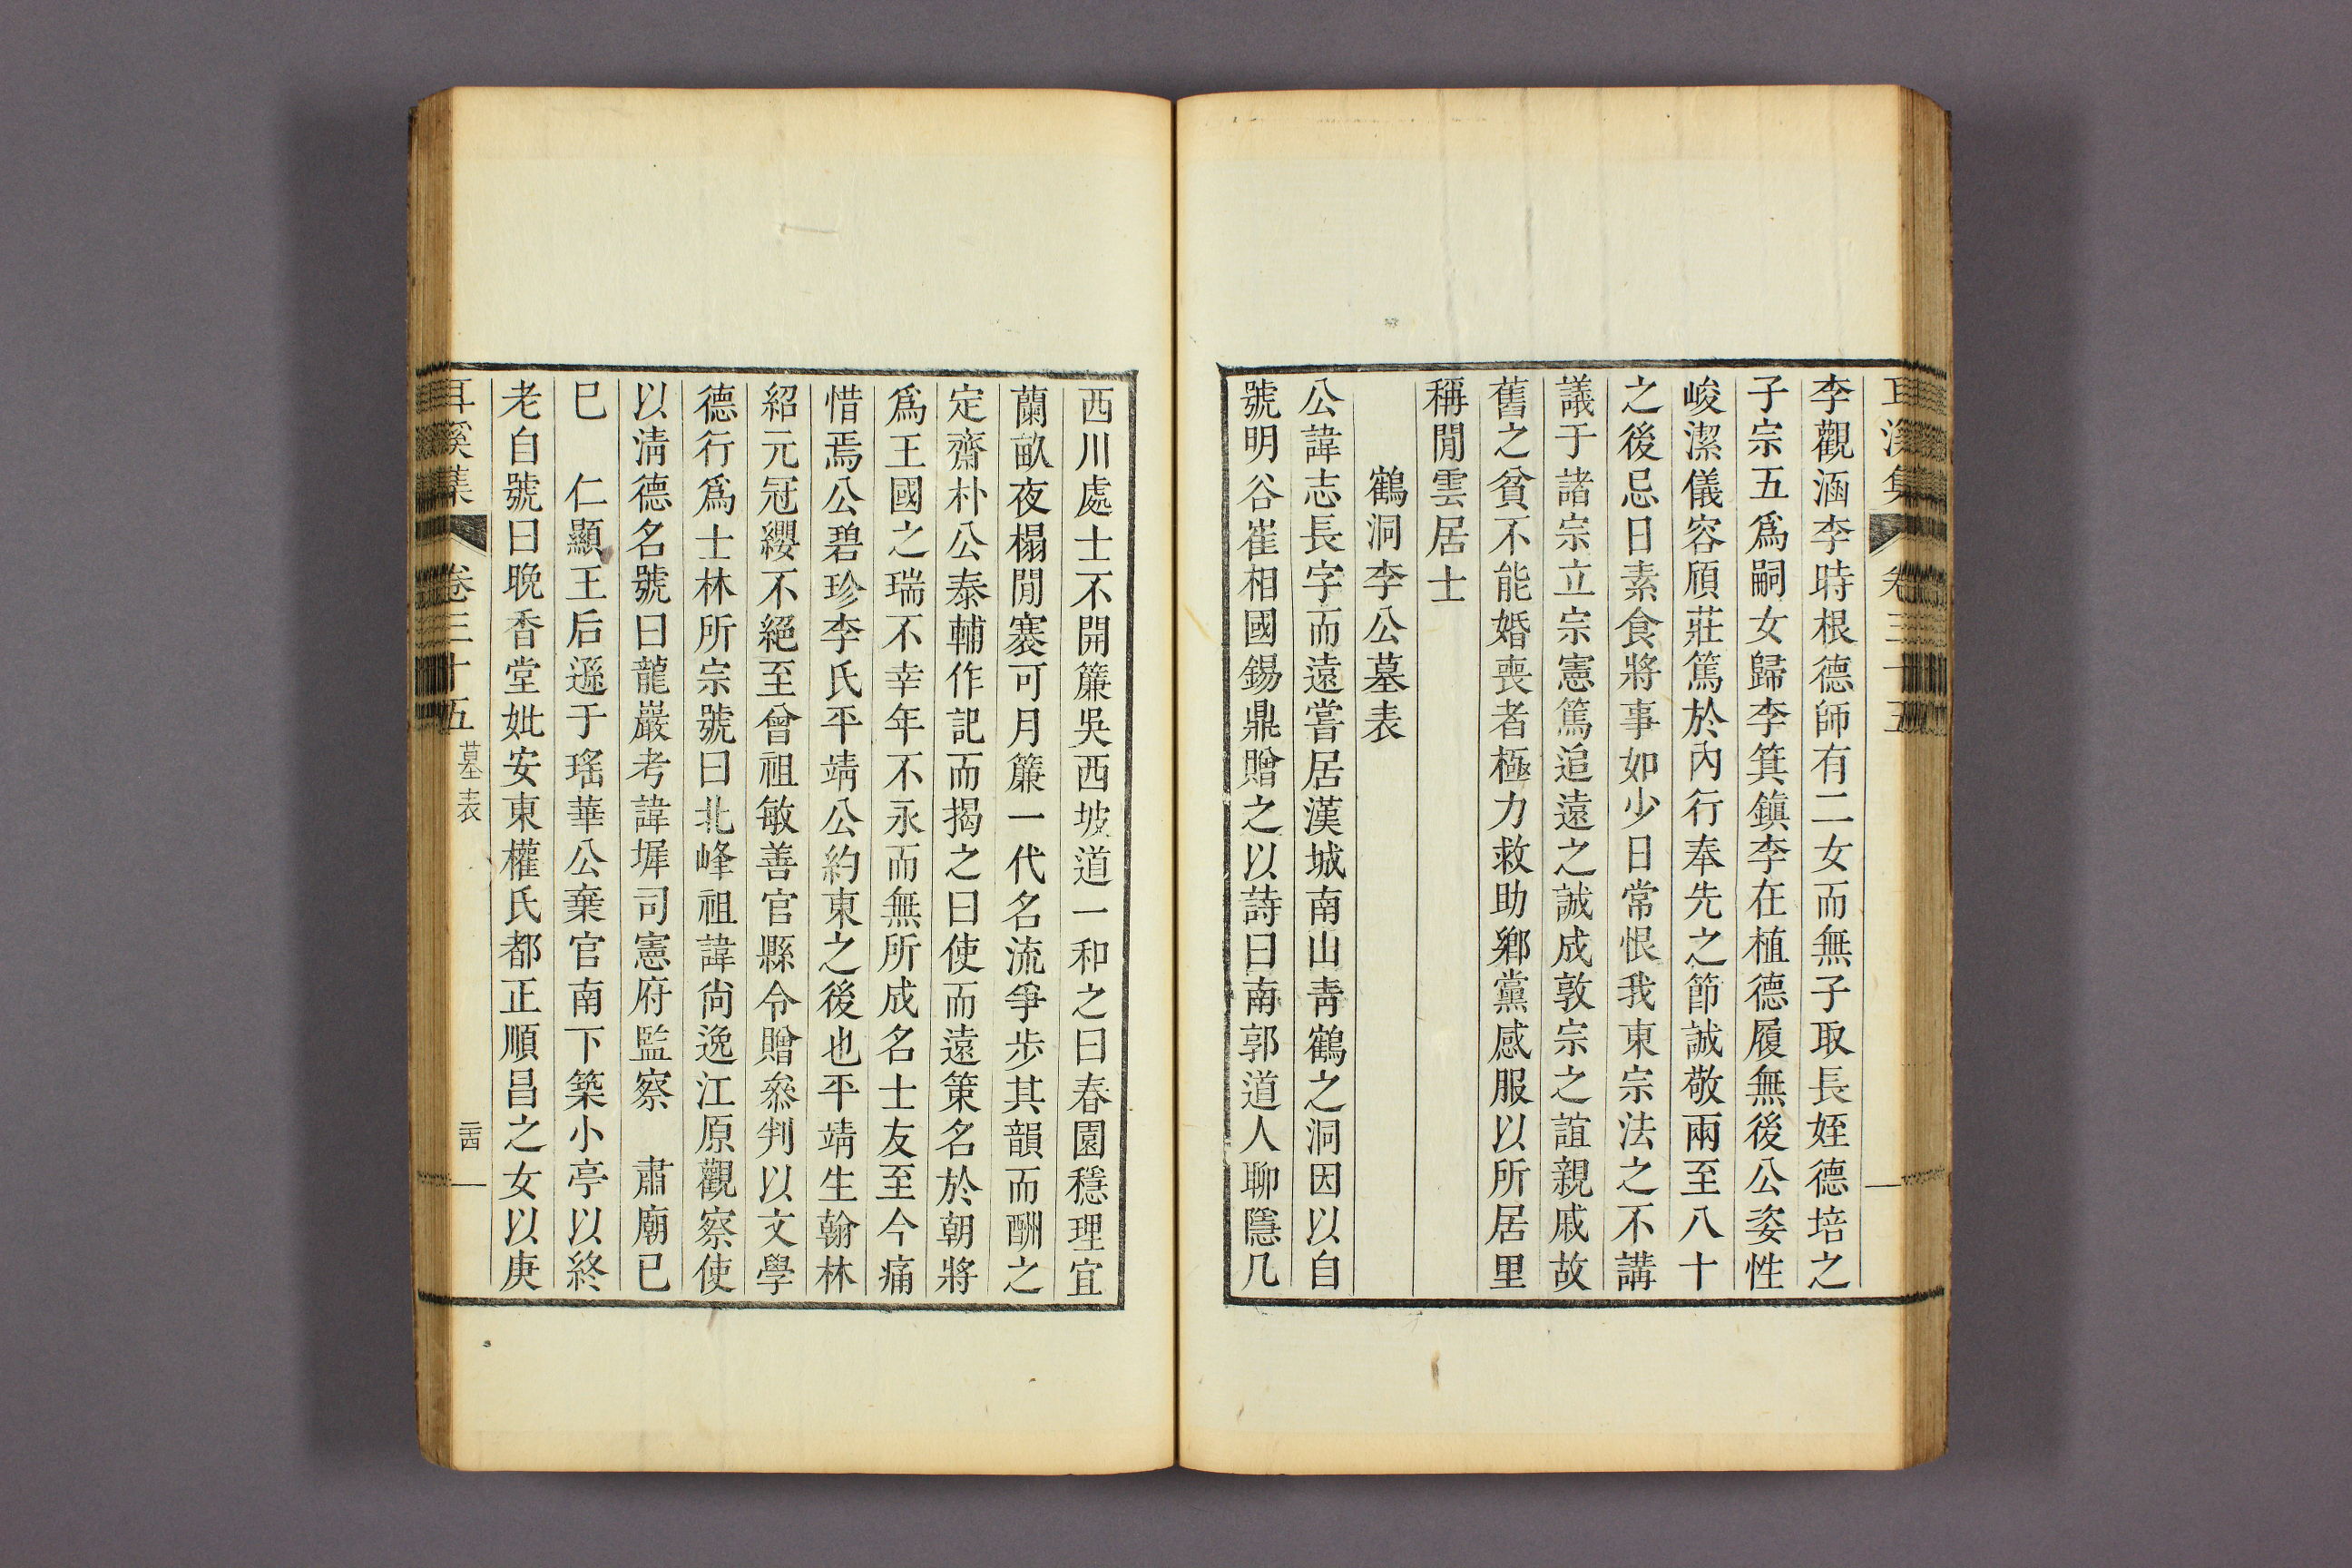 耳溪集 卷三十五
李觀涵李時根德師有二女而無子取長姪德培之
子宗五爲嗣女歸李箕鎭李在植德履無後公姿性
峻潔儀容頎莊篤於內行奉先之節誠敬兩至八十
之後忌日素食將事如少日常恨我東宗法之不講
議于諸宗立宗憲篤追遠之誠成敦宗之誼親戚故
舊之貧不能婚喪者極力救助鄕黨感服以所居里
稱閒雲居士
鶴洞李公墓表
公諱志長字而遠嘗居漢城南山靑鶴之洞因以自
號明谷崔相國錫鼎贈之以詩曰南郭道人聊隱几
西川處士不開簾吳西坡道一和之曰春園穩理宜
蘭畝夜榻閒褰可月簾一代名流爭步其韻而酬之
定齋朴公泰輔作記而揭之曰使而遠策名於朝將
爲王國之瑞不幸年不永而無所成名士友至今痛
惜焉公碧珍李氏平靖公約東之後也平靖生翰林
紹元冠纓不絕至曾祖敏善官縣令贈叅判以文學
德行爲士林所宗號曰北峰祖諱尙逸江原觀察使
以淸德名號曰龍巖考諱墀司憲府監察 肅廟已
巳 仁顯王后遜于瑤華公棄官南下築小亭以終
老自號曰晩香堂妣安東權氏都正順昌之女以庚
耳溪集 卷三十五 墓表 二十四